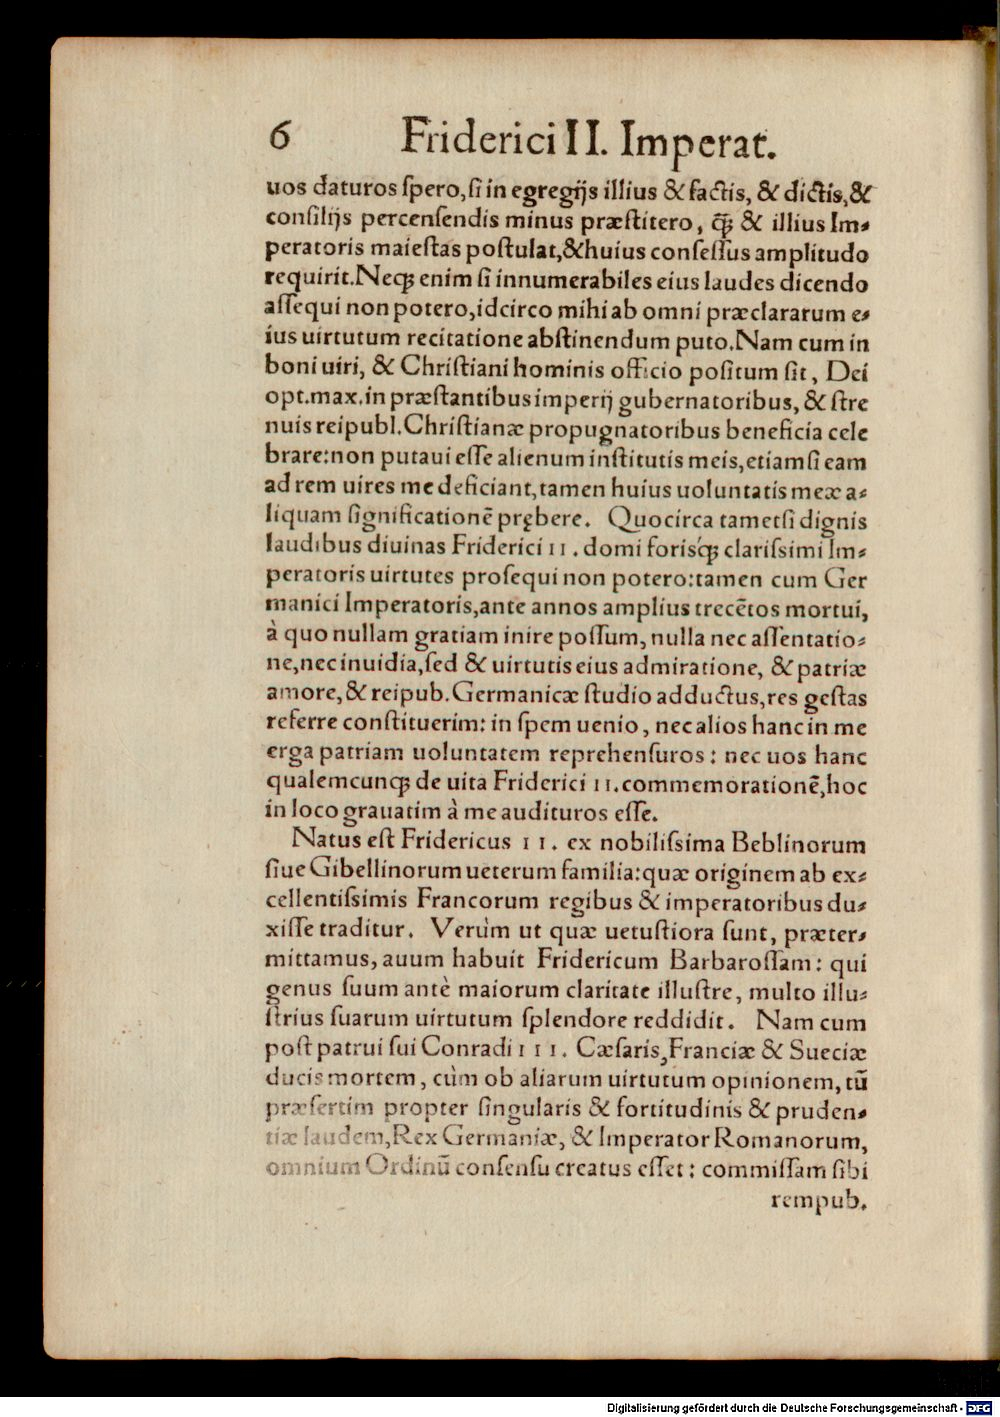 6 Friderici II. Imperat.
uos daturos ſpero, ſi in egregijs illius & factis, & dictis, &
conſilijs percenſendis minus præſtitero, q̃ꝫ & illius Im⸗
peratoris maieſtas poſtulat, & huius conſeſſus amplitudo
requirit. Neqꝫ enim ſi innumerabiles eius laudes dicendo
aſſequi non potero, idcirco mihi ab omni præclararum e⸗
ius uirtutum recitatione abſtinendum puto. Nam cum in
boni uiri, & Chriſtiani hominis officio poſitum ſit, Dei
opt. max. in præſtantibus imperij gubernatoribus, & ſtre
nuis reipubl. Chriſtianæ propugnatoribus beneficia cele
brare: non putaui eſſe alienum inſtitutis meis, etiam ſi eam
ad rem uires me deficiant, tamen huius uoluntatis meæ a⸗
liquam ſignificationẽ prębere. Quocirca tametſi dignis
laudibus diuinas Friderici II. domi forisq́ꝫ clariſsimi Im⸗
peratoris uirtutes proſequi non potero: tamen cum Ger
manici Imperatoris, ante annos amplius trecẽtos mortui,
à quo nullam gratiam inire poſſum, nulla nec aſſentatio⸗
ne, nec inuidia, ſed & uirtutis eius admiratione, & patriæ
amore, & reipub. Germanicæ ſtudio adductus, res geſtas
referre conſtituerim: in ſpem uenio, nec alios hanc in me
erga patriam uoluntatem reprehenſuros: nec uos hanc
qualemcunqꝫ de uita Friderici II. commemorationẽ, hoc
in loco grauatim à me audituros eſſe.
Natus eſt Fridericus II. ex nobiliſsima Beblinorum
ſiue Gibellinorum ueterum familia: quæ originem ab ex⸗
cellentiſsimis Francorum regibus & imperatoribus du⸗
xiſſe traditur. Verùm ut quæ uetuſtiora ſunt, præter⸗
mittamus, auum habuit Fridericum Barbaroſſam: qui
genus ſuum antè maiorum claritate illuſtre, multo illu⸗
ſtrius ſuarum uirtutum ſplendore reddidit. Nam cum
poſt patrui ſui Conradi III. Cæſaris, Franciæ & Sueciæ
ducis mortem, cùm ob aliarum uirtutum opinionem, tũ
præſertim propter ſingularis & fortitudinis & pruden⸗
tiæ laudem, Rex Germaniæ, & Imperator Romanorum,
omnium Ordinũ conſenſu creatus eſſet: commiſſam ſibi
rempub.
Digitalisierung gefördert durch die Deutsche Forschungsgemeinschaft - DFG